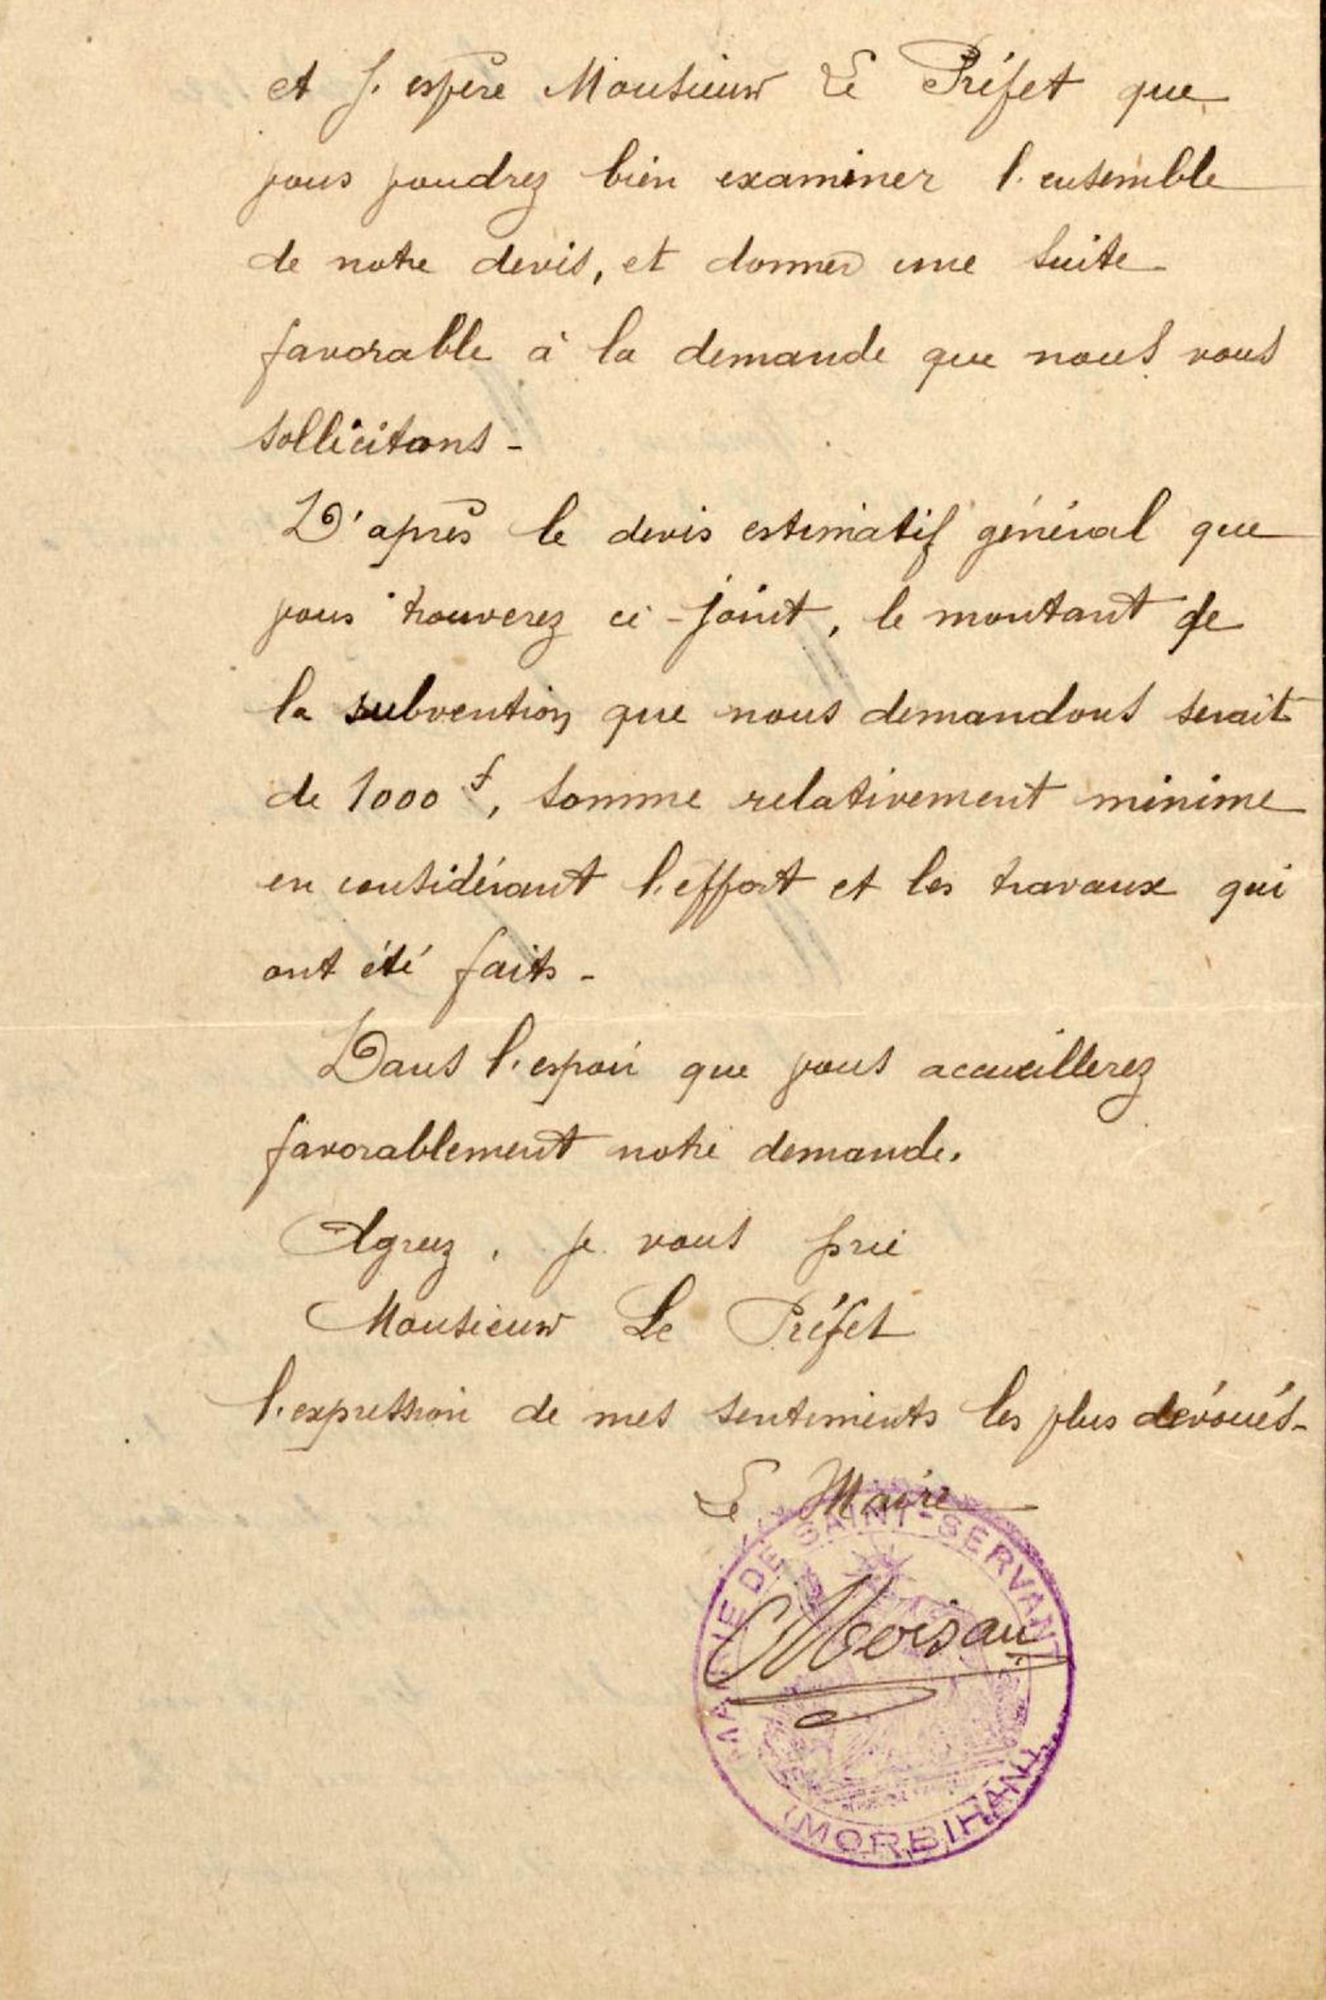 et j'espère Monsieur Le Préfet que
vous voudrez bien examiner l'ensemble
de notre devis, et donner une suite
favorable à la demande que nous vous
sollicitons -
D'après le devis estimatif général que
vous trouverez ci-joint, le montant de
la subvention que nous demandons serait
de 1000 f, somme relativement minime
en considérant l'effort et les travaux qui
ont été faits -
Dans l'espoir que vous accueillerez
favorablement notre demande.
Agréez, je vous prie
Monsieur Le Préfet
l'expression de mes sentiments les plus dévoués -
Le Maire
MAIRIE DE SAINT-SERVANT
Moisan
(MORBIHAN)